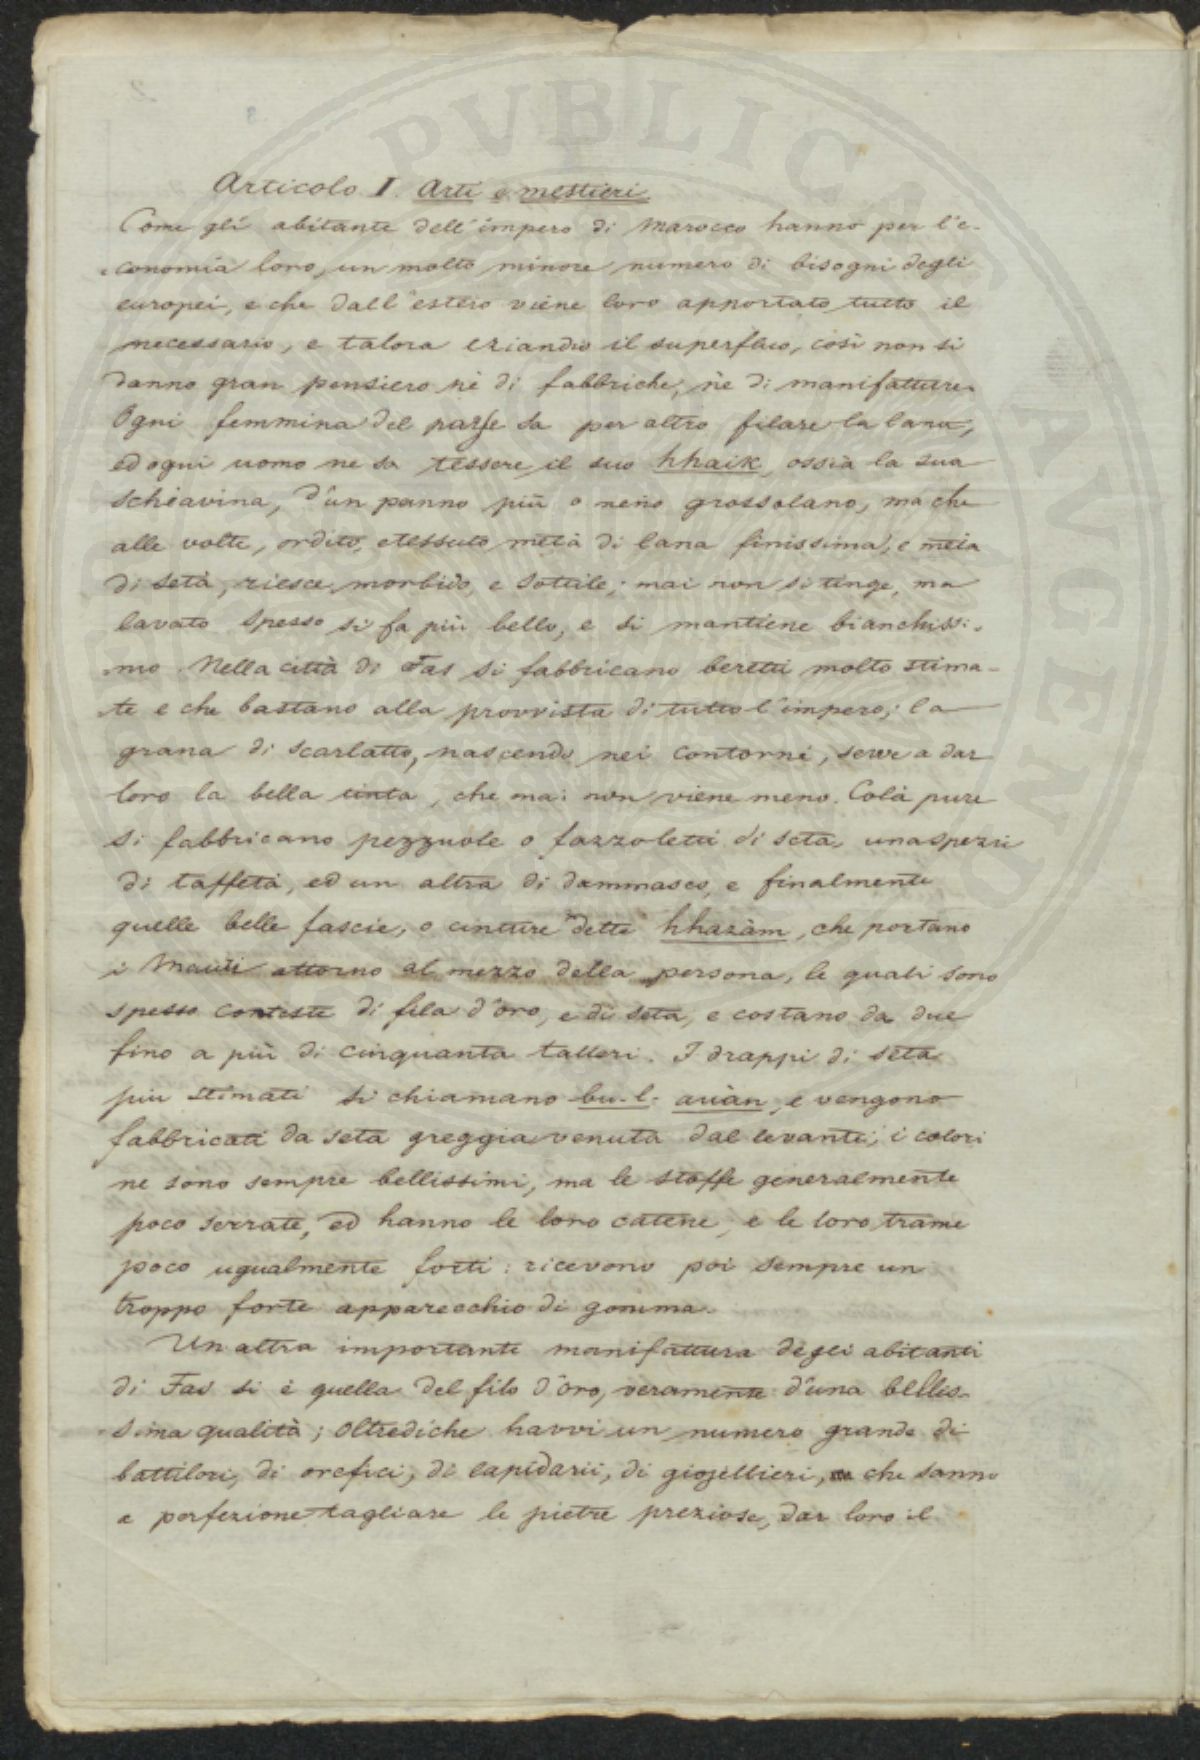 Articolo I. Arti e mestieri
Come gli abitante dell'impero di Marocco hanno per l'e-
conomia loro, un molto minore numero di bisogni degli
europei, e che dall'estero viene loro apportato tutto il
necessario, e talora eziandio il superfluo, così non si
danno gran pensiero nè di fabbriche, nè di manifatture.
Ogni femmina del paese sa per altro filare la lana,
ed ogni uomo ne sa tessere il suo hhaik, ossia la sua
schiavina, d'un panno più o meno grossolano, ma che
alle volte, ordito, e tessuto metà di lana finissima, e metà
di seta, riesce morbido, e sottile; mai non si tinge, ma
lavato spesso si fa più bello, e si mantiene bianchissi-
mo. Nella città di Fas si fabbricano beretti molto stima-
te e che bastano alla provvista di tutto l'impero; la
grana di scarlatto, nascendo nei contorni, serve a dar
loro la bella tinta, che mai non viene meno. Colà pure
si fabbricano pezzuole o fazzoletti di seta, una spezie
di taffetà, ed un altra di dammasco, e finalmente
quelle belle fascie, o cinture dette hhazàm, che portano
i Mauri attorno al mezzo della persona, le quali sono
spesso conteste di fila d'oro, e di seta, e costano da due
fino a più di cinquanta talleri. I drappi di seta
più stimati si chiamano bu-l-auàn, e vengono
fabbricati da seta greggia venuta dal levante; i colori
ne sono sempre bellissimi, ma le stoffe generalmente
poco serrate, ed hanno le loro catene, e le loro trame
poco ugualmente forti: ricevono poi sempre un
troppo forte apparecchio di gomma.
Un altra importante manifattura degli abitanti
di Fas si è quella del filo d'oro, veramente d'una bellis-
sima qualità; oltrediche havvi un numero grande di
battilori, di orefici, di lapidarii, di giojellieri, che sanno
a perfezione tagliare le pietre preziose, dar loro il
PVBLICA
AVGENDO